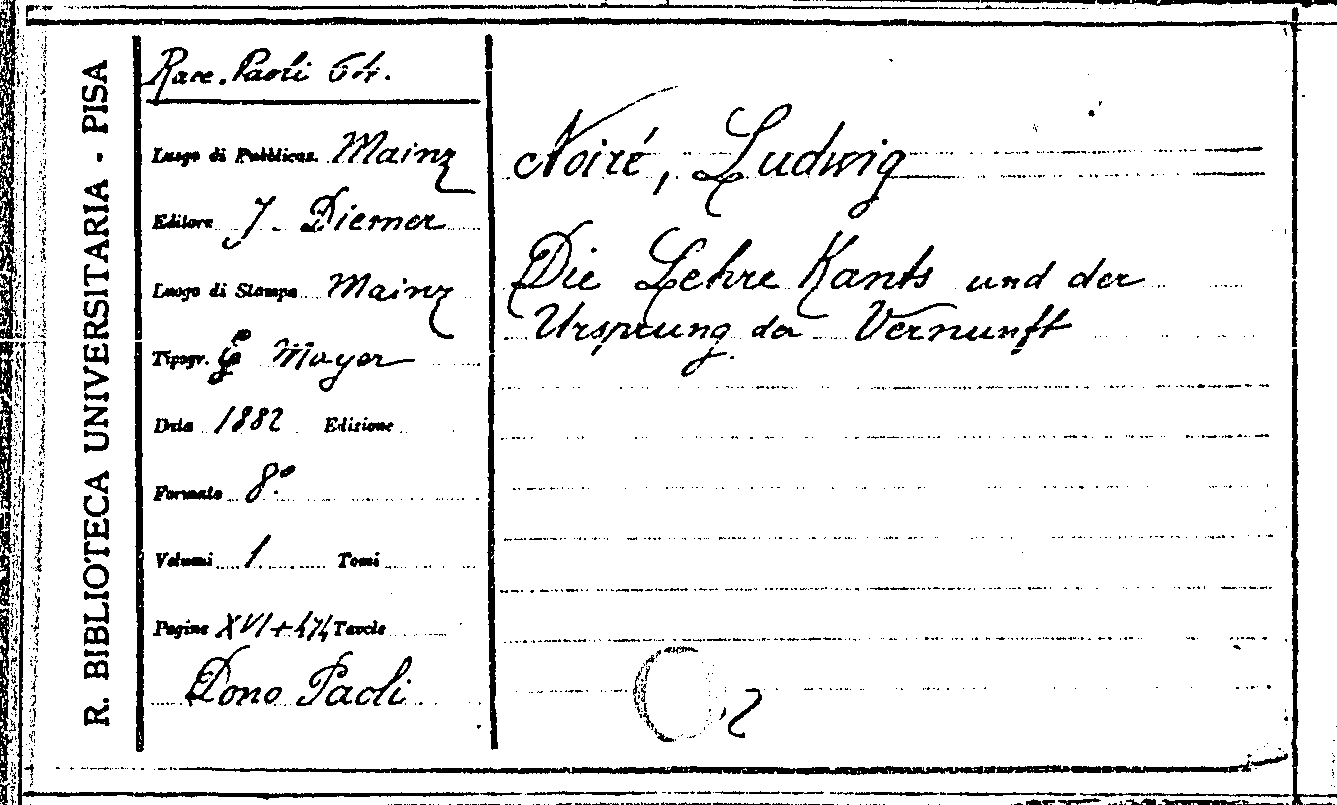 R. BIBLIOTECA UNIVERSITARIA - PISA
Racc. Paoli 64.
Luogo di Pubblicaz. Mainz
Editore J. Diemer
Luogo di Stampa Mainz
Tipogr. Mayer
Data 1882 Edizione
Formato 8°
Volumi 1 Tomi
Pagine XVI+474 Tavole
Dono Paoli
Noiré, Ludwig
Die Lehre Kants und der
Ursprung der Vernunft